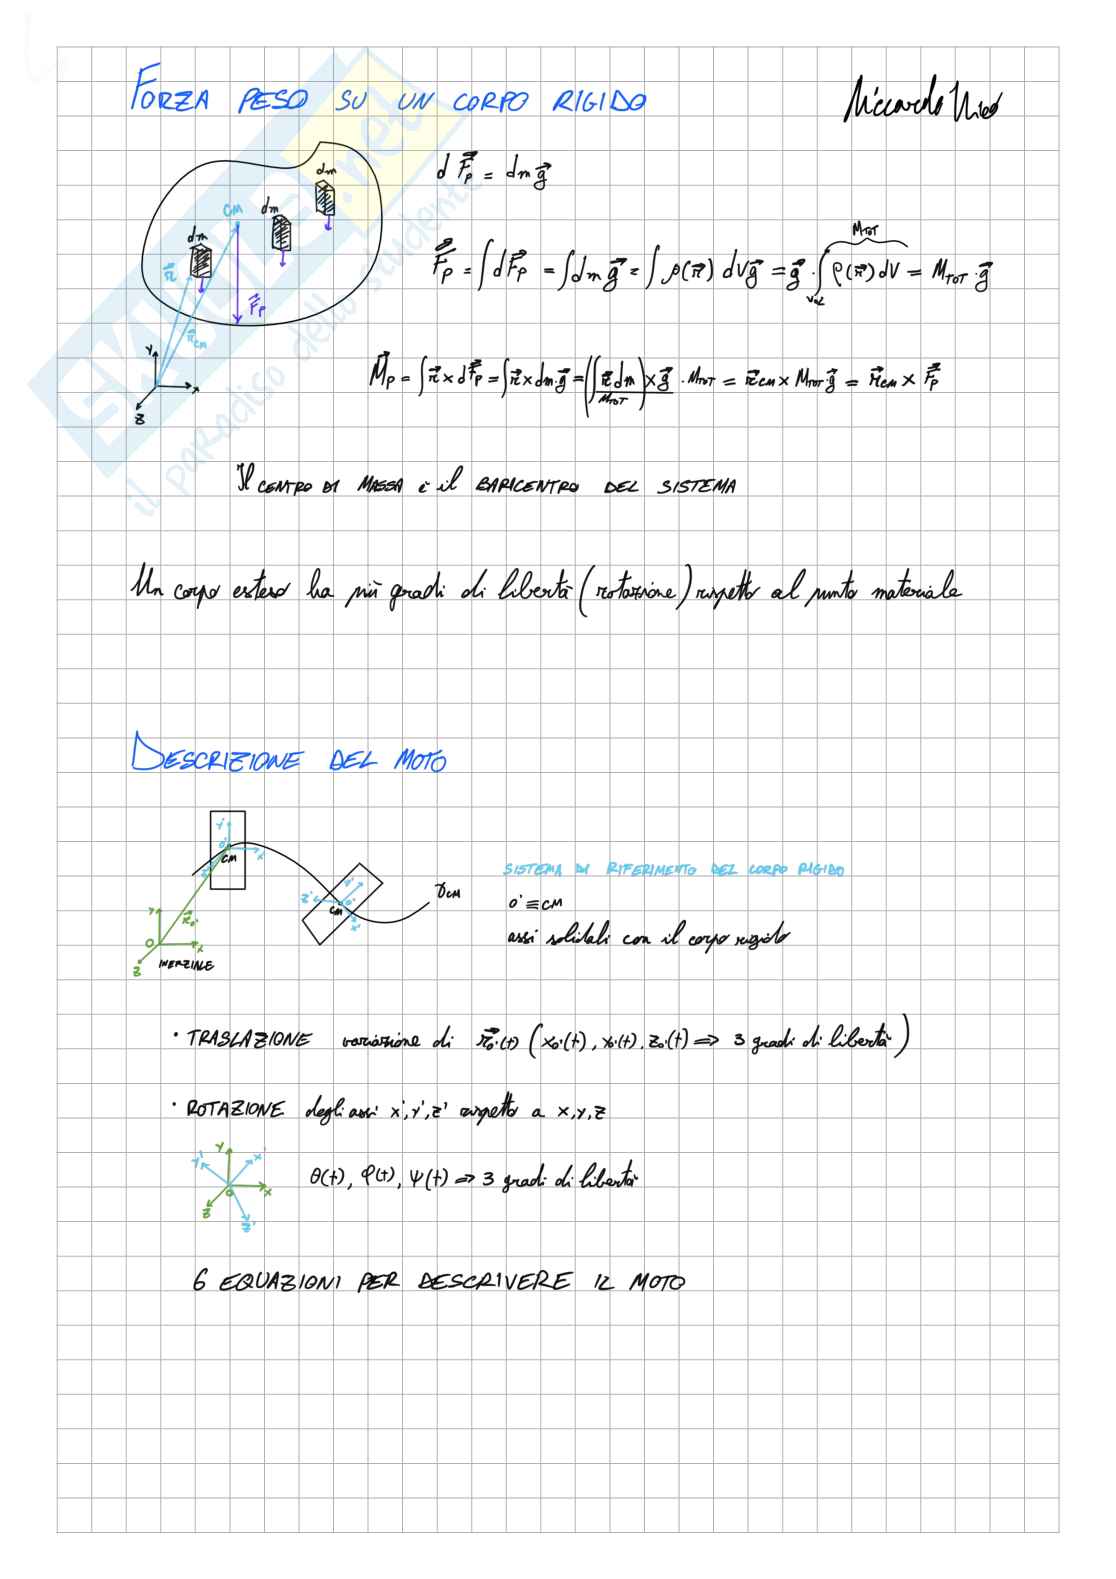 FORZA PESO SU UN CORPO RIGIDO
Riccardo Nico
dm
dm
dm
CM
r⃗
r⃗cm
F⃗p
y
x
z
dF⃗p = dm g⃗
F⃗p = ∫dF⃗p = ∫dm g⃗ = ∫ρ(r⃗) dV g⃗ = g⃗ · ∫VOL ρ(r⃗) dV = MTOT · g⃗
MTOT
M⃗p = ∫r⃗ × dF⃗p = ∫r⃗ × dm · g⃗ = (∫r⃗ dm / MTOT) × g⃗ · MTOT = r⃗CM × MTOT · g⃗ = r⃗CM × F⃗p
Il CENTRO DI MASSA è il BARICENTRO DEL SISTEMA
Un corpo esteso ha più gradi di libertà (rotazione) rispetto al punto materiale
DESCRIZIONE DEL MOTO
y' o' x' z' CM
z' y' o' x' CM
γCM
y r⃗o' O x z
INERZIALE
SISTEMA DI RIFERIMENTO DEL CORPO RIGIDO
O' ≡ CM
assi solidali con il corpo rigido
· TRASLAZIONE variazione di r⃗o'(t) (xo'(t), yo'(t), zo'(t) ⇒ 3 gradi di libertà)
· ROTAZIONE degli assi x', y', z' rispetto a x, y, z
y y' x' O x z z'
θ(t), φ(t), ψ(t) ⇒ 3 gradi di libertà
6 EQUAZIONI PER DESCRIVERE IL MOTO
SKUOLA.net
il paradiso dello studente